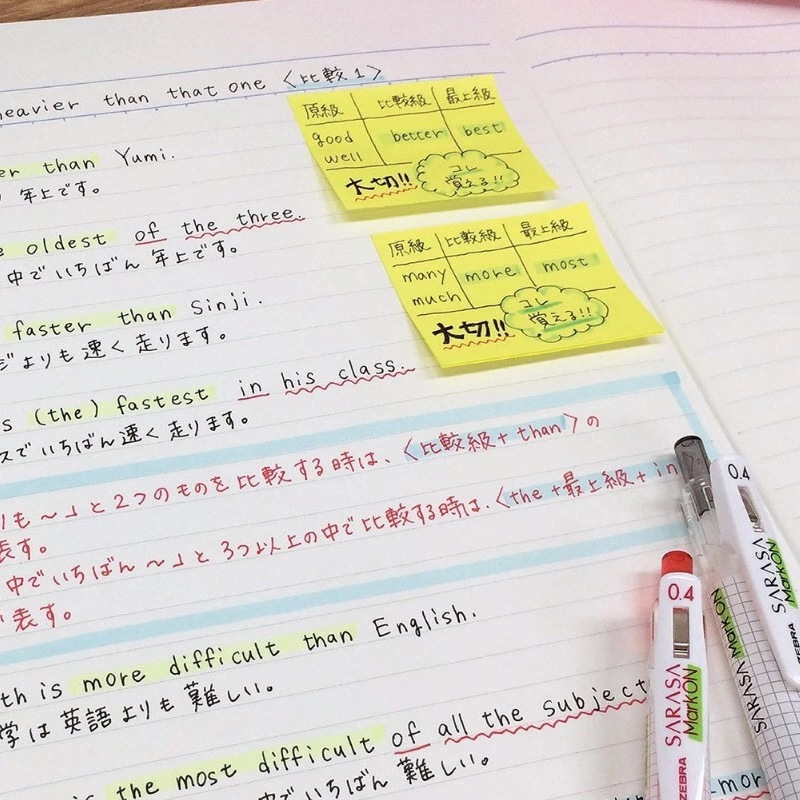 heavier than that one 〈比較1〉
than Yumi.
年上です。
oldest of the three.
中でいちばん年上です。
faster than Sinji.
よりも速く走ります。
(the) fastest in his class.
スでいちばん速く走ります。
も〜」と2つのものを比較する時は、〈比較級+than〉の
表す。
中でいちばん〜」と3つ以上の中で比較する時は、〈the+最上級+in
表す。
is more difficult than English.
学は英語よりも難しい。
the most difficult of all the subject
でいちばん難しい。
原級 比較級 最上級
good better best
well
大切!! コレ
覚える!!
原級 比較級 最上級
many more most
much
大切!! コレ
覚える!!
0.4
SARASA
MarkON
ZEBRA
0.4
SARASA
MarkON
ZEBRA
SARASA MarkON